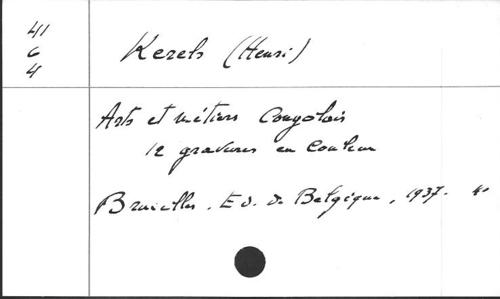 41
6
4
Kerels (Henri)
Arts et métiers Congolais
12 gravures en couleur
Bruxelles. Ed. de Belgique, 1937. 4°